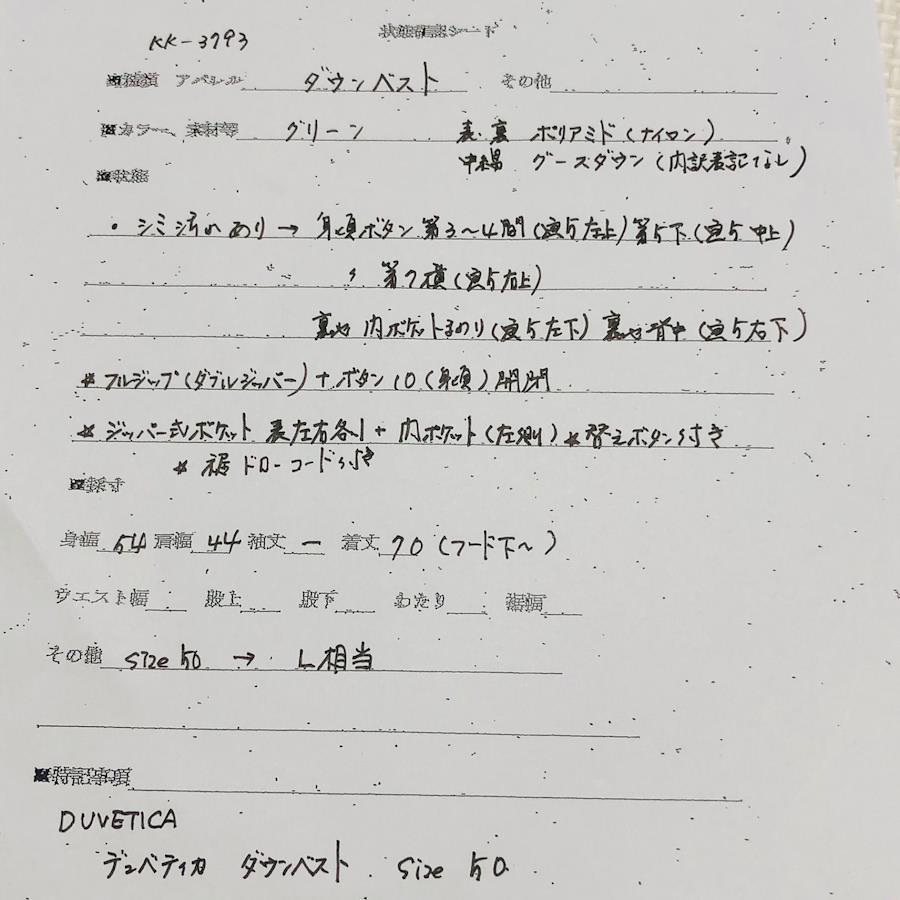 状態確認シート
KK-3793
■種類 アパレル ダウンベスト その他
■カラー、素材等 グリーン 表・裏 ポリアミド(ナイロン)
中綿 グースダウン(内訳表記なし)
■状態
・シミ汚れあり → 身頃ボタン第3〜4間(画5左上)第5下(画5中上)
、第7横(画5右上)
裏地 内ポケットまわり(画5左下) 裏地背中(画5右下)
* フルジップ(ダブルジッパー)+ボタン10(身頃)開閉
* ジッパー式ポケット 表左右各1+内ポケット(左側) * 替えボタン付き
* 裾 ドローコード付き
■採寸
身幅 54 肩幅 44 袖丈 ー 着丈 70(フード下〜)
ウエスト幅 股上 股下 わたり 裾幅
その他 size 50 → L相当
■特記事項
DUVETICA
デュベティカ ダウンベスト size 50